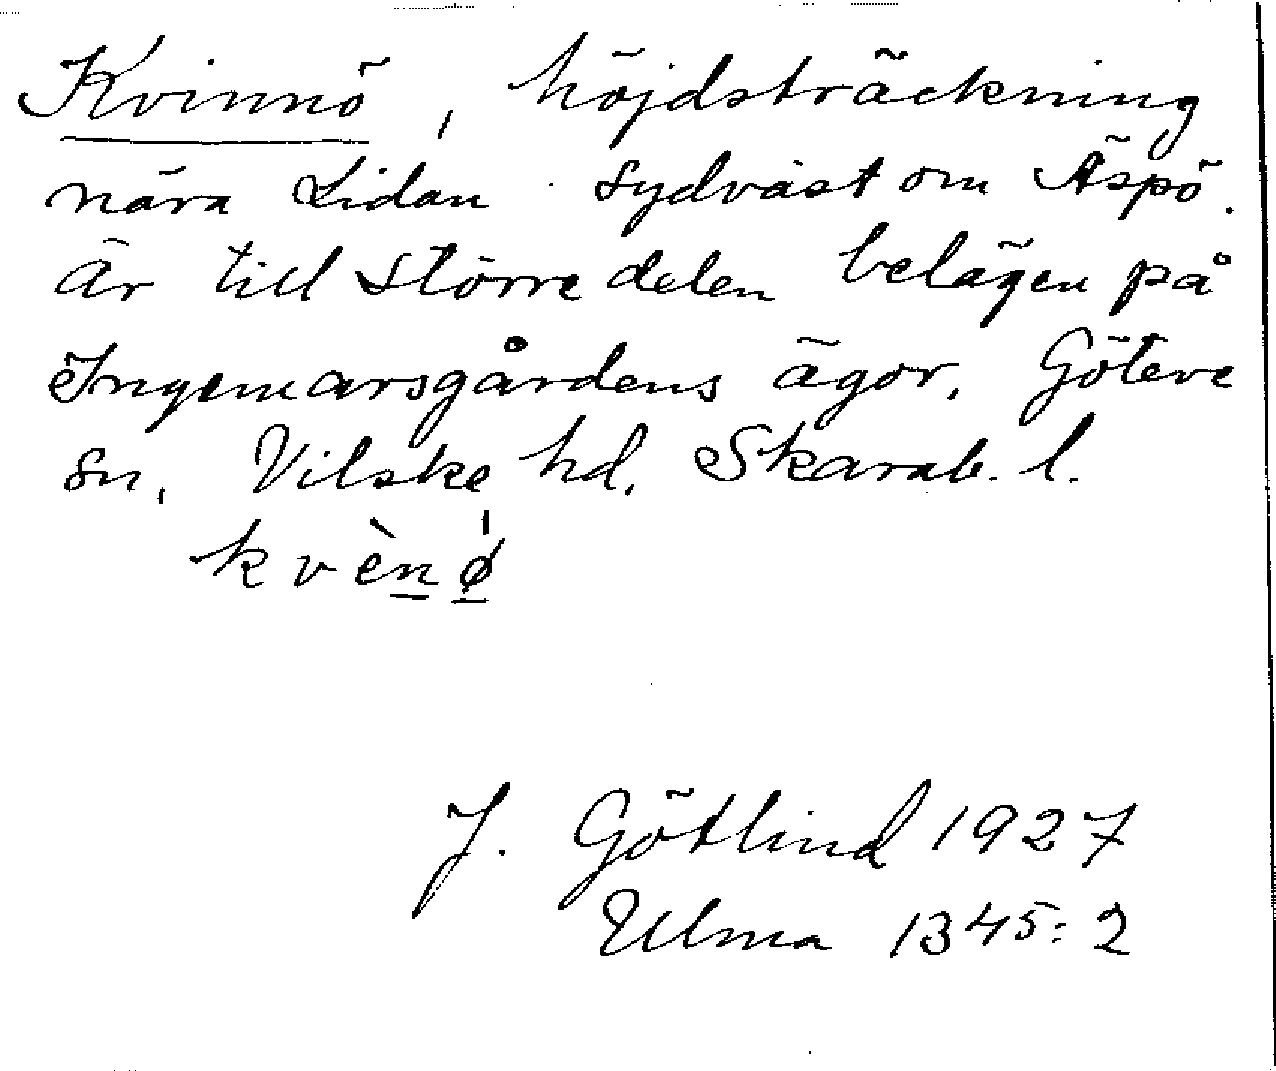 Kvinnö, höjdsträckning
nära Lidan sydväst om Äspö.
Är till större delen belägen på
Ingemarsgårdens ägor, Göteve
sn, Vilske hd, Skarab. l.
kvènø̀
J. Götlind 1927
Ulma 1345:2